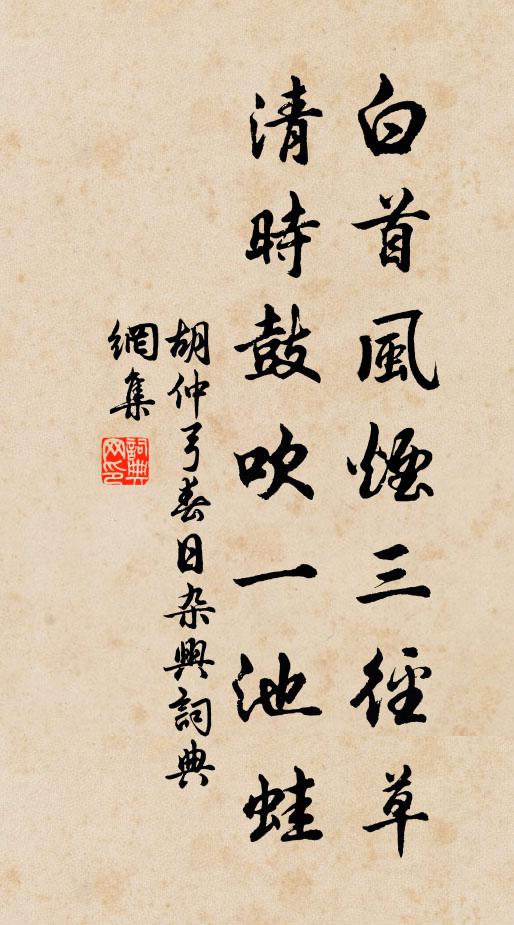 白首風煙三徑草
清時鼓吹一池蛙
胡仲弓春日杂興詞典
網集
詞典
网印